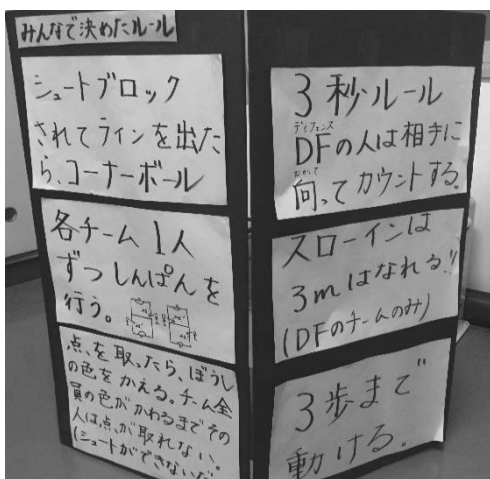 みんなで決めたルール
シュートブロック
されてライン を出た
ら、コーナーボール
各チーム 1人
ずつしんぱんを
行う。
点を取ったら、ぼうし
の色をかえる。チーム全
員の色がかわるまでその
人は点が取れない。
(シュートができない
3秒ルール
ディフェンス
DFの人は相手に
向って カウントする。
スローインは
3mはなれる!!
(DFのチームのみ)
3歩まで
動ける。